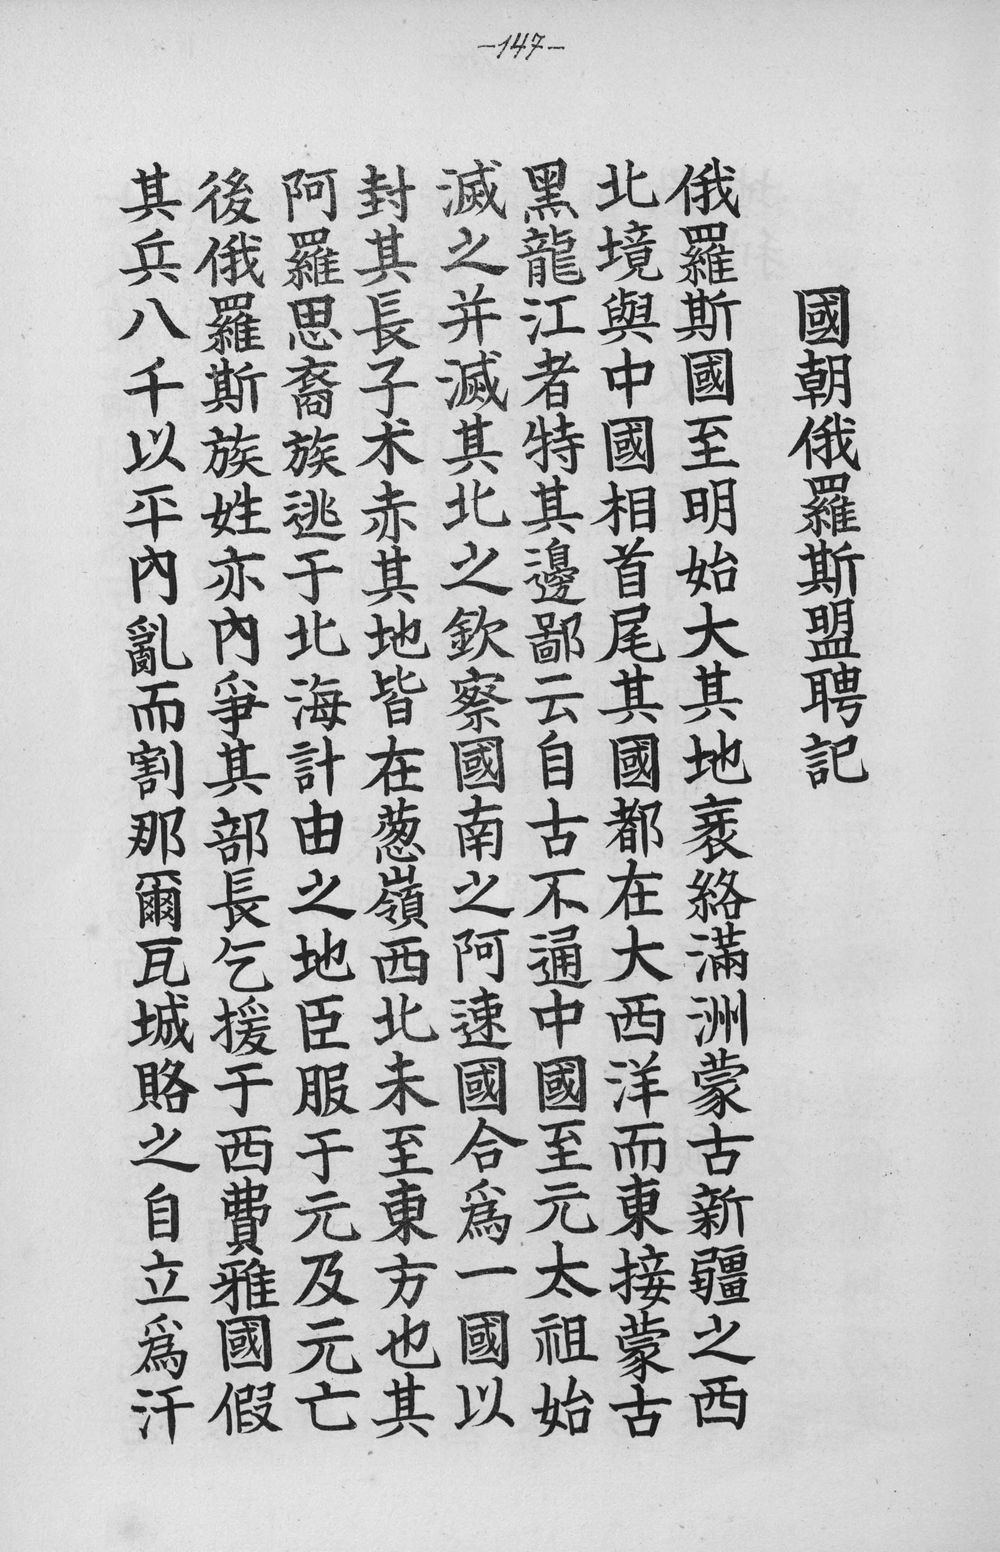 -147-
國朝俄羅斯盟聘記
俄羅斯國至明始大其地袤絡滿洲蒙古新疆之西
北境與中國相首尾其國都在大西洋而東接蒙古
黑龍江者特其邊鄙云自古不通中國至元太祖始
滅之并滅其北之欽察國南之阿速國合爲一國以
封其長子朮赤其地皆在葱嶺西北未至東方也其
阿羅思裔族逃于北海計由之地臣服于元及元亡
後俄羅斯族姓亦內爭其部長乞援于西費雅國假
其兵八千以平內亂而割那爾瓦城賂之自立爲汗